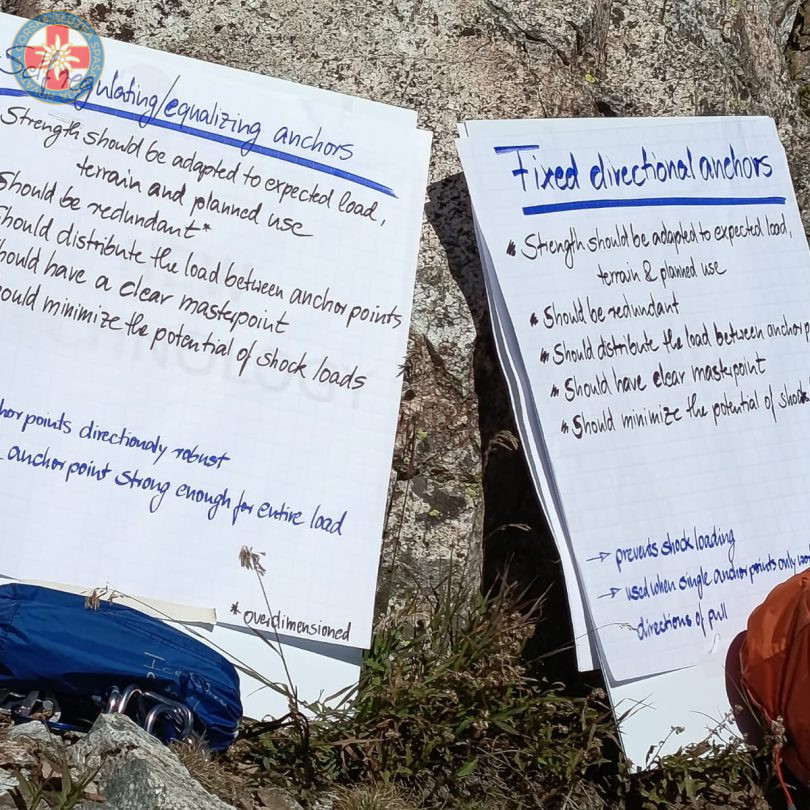 Self regulating/equalizing anchors
Strength should be adapted to expected load,
terrain and planned use
Should be redundant*
Should distribute the load between anchor points
should have a clear masterpoint
should minimize the potential of shock loads
anchor points directionaly robust
anchor point strong enough for entire load
* overdimensioned
Fixed directional anchors
* Strength should be adapted to expected load,
terrain & planned use
* Should be redundant
* Should distribute the load between anchor p
* Should have clear masterpoint
* Should minimize the potential of shock
→ prevents shock loading
→ used when single anchor points only
directions of pull